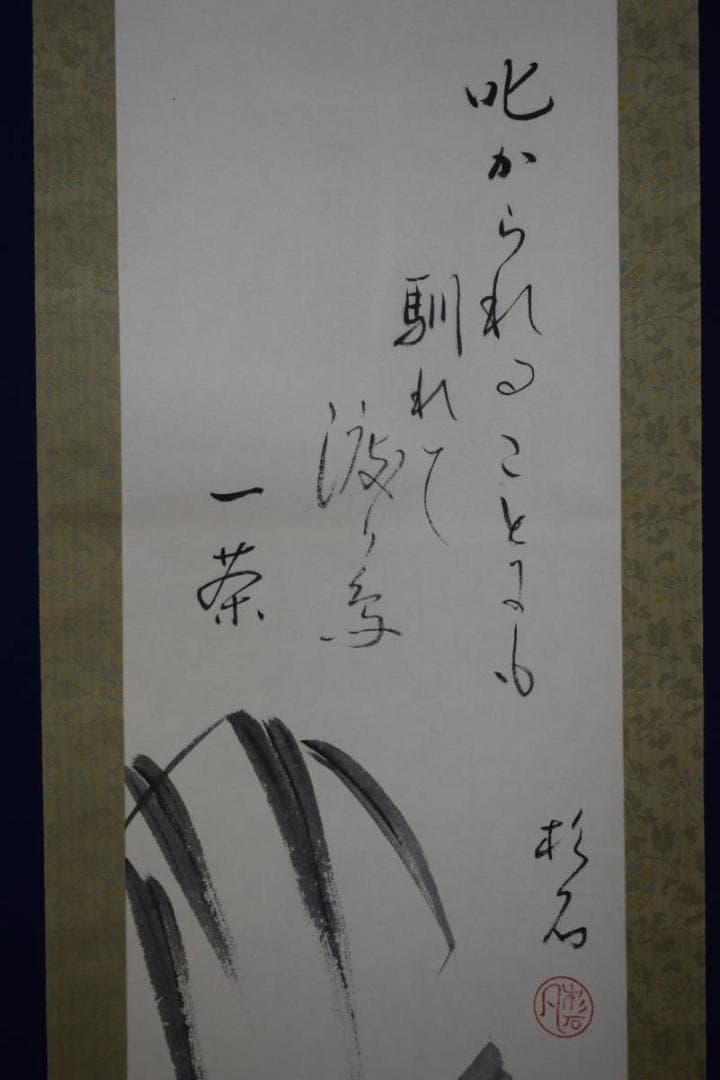 叱かられることにも
馴れて
渡り鳥
一茶
杉石
杉石